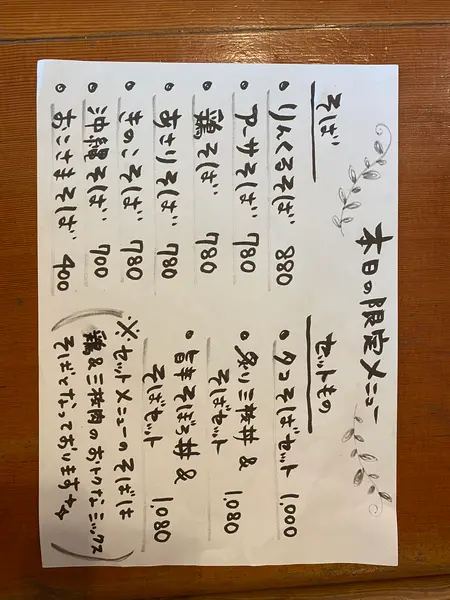 本日の限定メニュー
そば
• りんくるそば 880
• アーサそば 780
• 鶏そば 780
• あさりそば 780
• きのこそば 780
• 沖縄そば 700
• おこさまそば 400
セットもの
• タコそばセット 1,000
• 炙り三枚丼&
そばセット 1,080
• 旨辛そぼろ丼&
そばセット 1,080
※セットメニューのそばは
鶏&三枚肉のおトクなミックス
そばとなっております☆☆